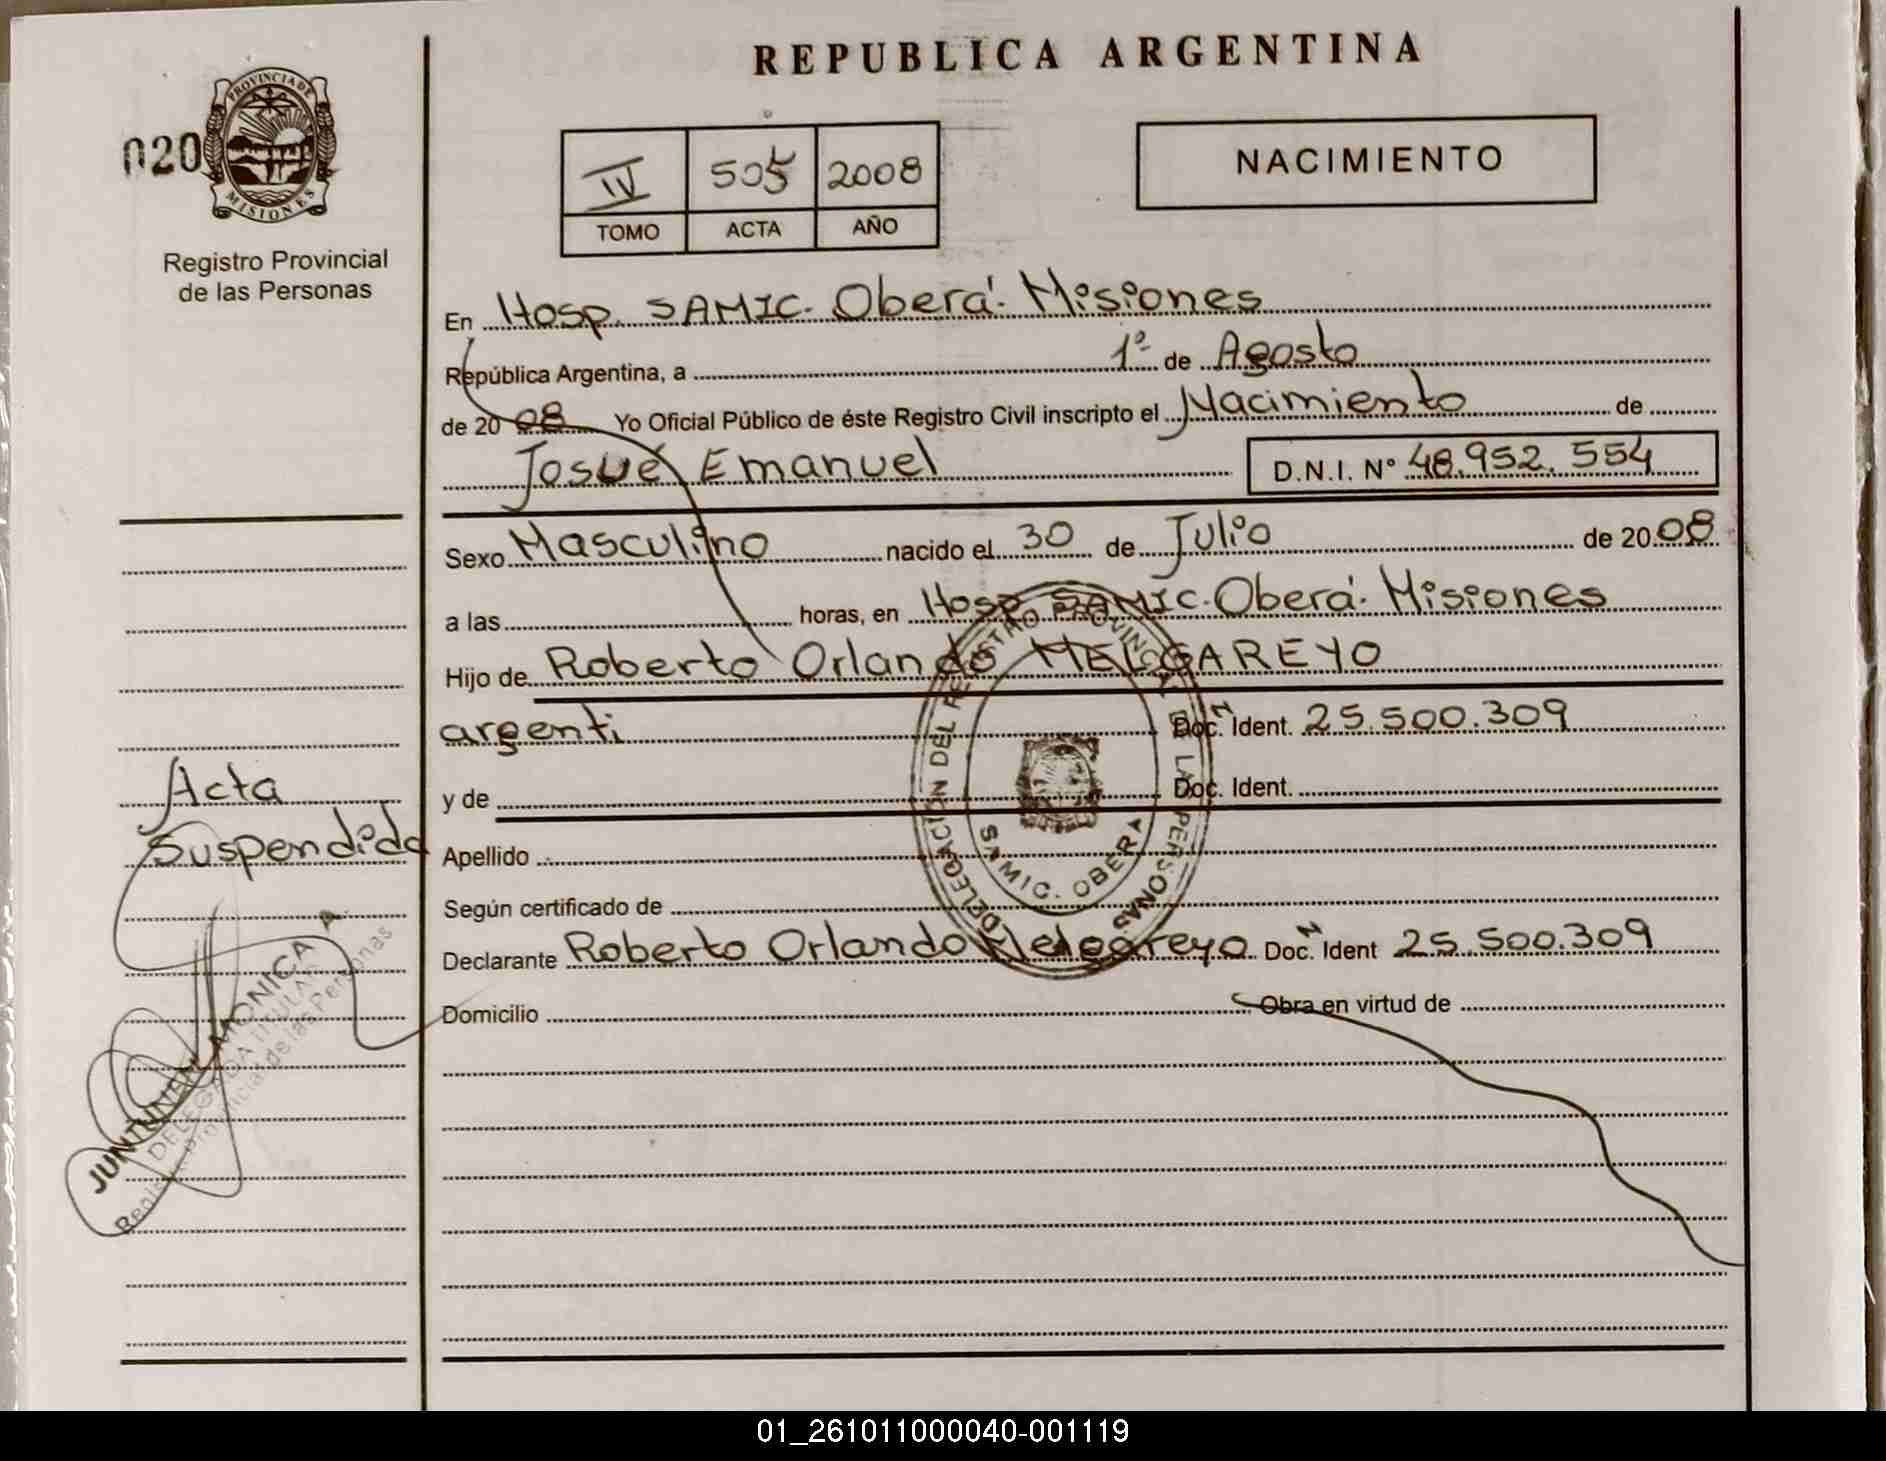 REPUBLICA ARGENTINA
020
PROVINCIA DE
MISIONES
Registro Provincial
de las Personas
IV 505 2008
TOMO ACTA AÑO
NACIMIENTO
En Hosp. SAMIC. Oberá. Misiones
República Argentina, a 1º de Agosto
de 2008 Yo Oficial Público de éste Registro Civil inscripto el Nacimiento de
Josué Emanuel D.N.I. Nº 48.952.554
Sexo Masculino nacido el 30 de Julio de 2008
a las horas, en Hosp SAMIC. Oberá. Misiones
Hijo de Roberto Orlando MELGAREYO
argenti Doc. Ident. 25.500.309
y de Doc. Ident.
Apellido
Según certificado de
Declarante Roberto Orlando Melgareyo Doc. Ident 25.500.309
Domicilio Obra en virtud de
Acta
Suspendida
MONICA A.
DELEGADA TITULAR
Registro Provincial de las Personas
DELEGACIÓN DEL REGISTRO PROVINCIAL DE LAS PERSONAS
SAMIC. OBERA
01_261011000040-001119